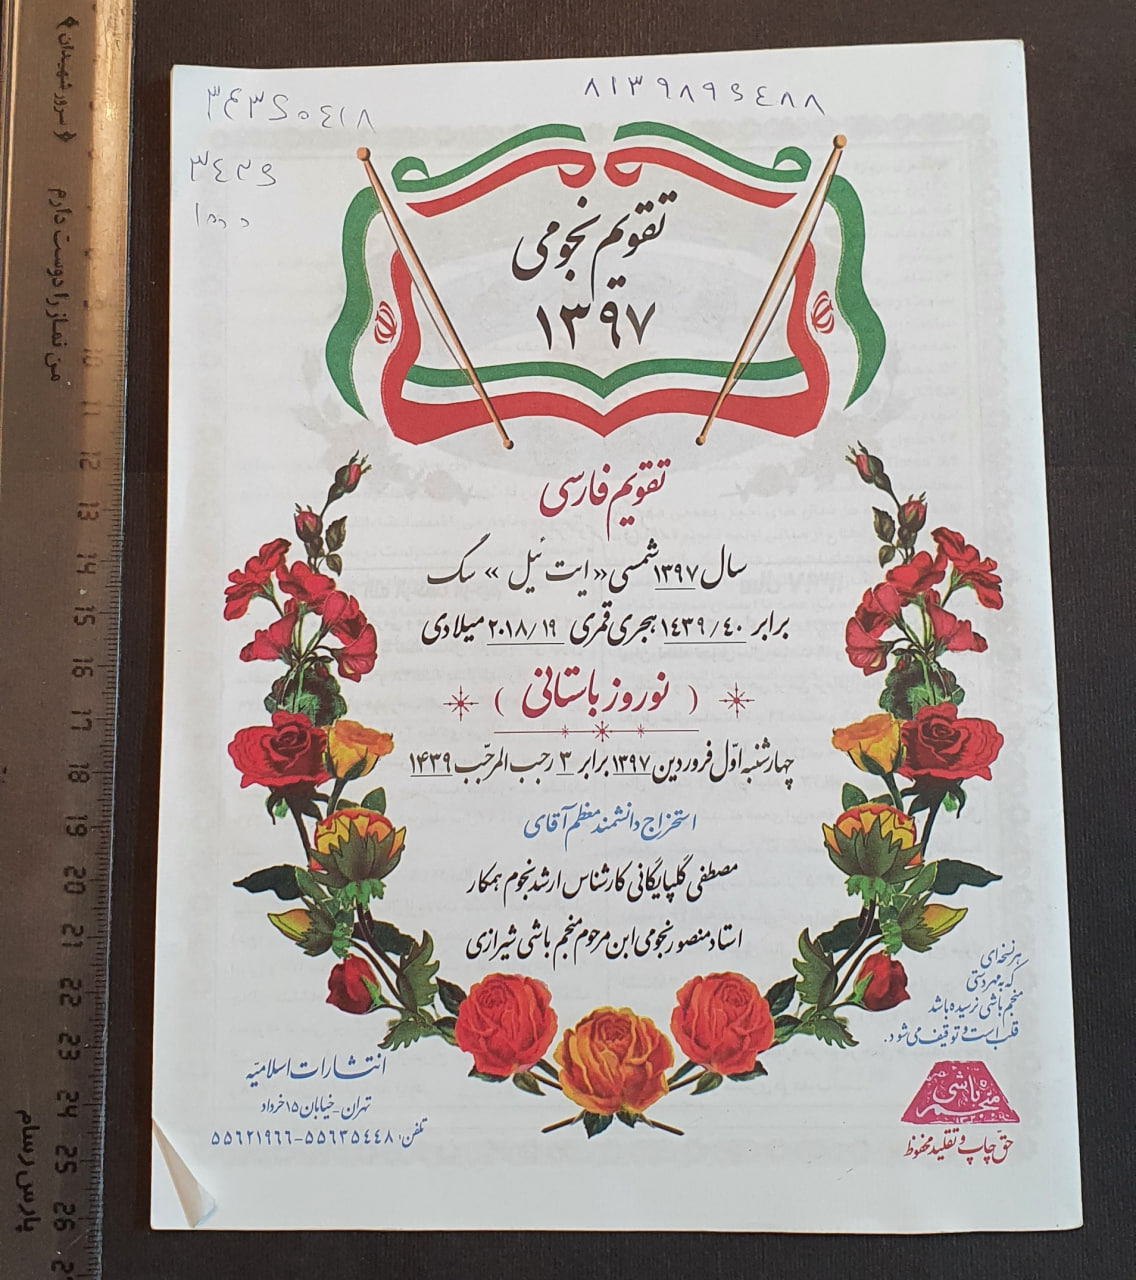 ۸۱۳۹۸۹۶۴۸۸
۳۴۳۶۰۴۱۸
۳۴۲۶
تقویم نجومی
۱۳۹۷
تقویم فارسی
سال ۱۳۹۷ شمسی «ایت ئیل» سگ
برابر ۱۴۳۹/۴۰ هجری قمری ۲۰۱۸/۱۹ میلادی
( نوروز باستانی )
چهارشنبه اوّل فروردین ۱۳۹۷ برابر ۳ رجب المرجّب ۱۴۳۹
استخراج دانشمند معظم آقای
مصطفی گلپایگانی کارشناس ارشد نجوم همکار
استاد منصور نجومی ابن مرحوم منجم باشی شیرازی
هر نسخه‌ای
که به مهر دستی
منجم باشی نرسیده باشد
قلب است و توقیف می‌شود.
منجم باشی
حق چاپ و تقلید محفوظ
انتشارات اسلامیّه
تهران - خیابان ۱۵ خرداد
تلفن: ۵۵۶۳۵۴۴۸-۵۵۶۲۱۹۶۶
﴿ سرور شهیدان ﴾
من نماز را دوست دارم
پارس رسام
10
11
12
13
14
15
16
17
18
19
20
21
22
23
24
25
26